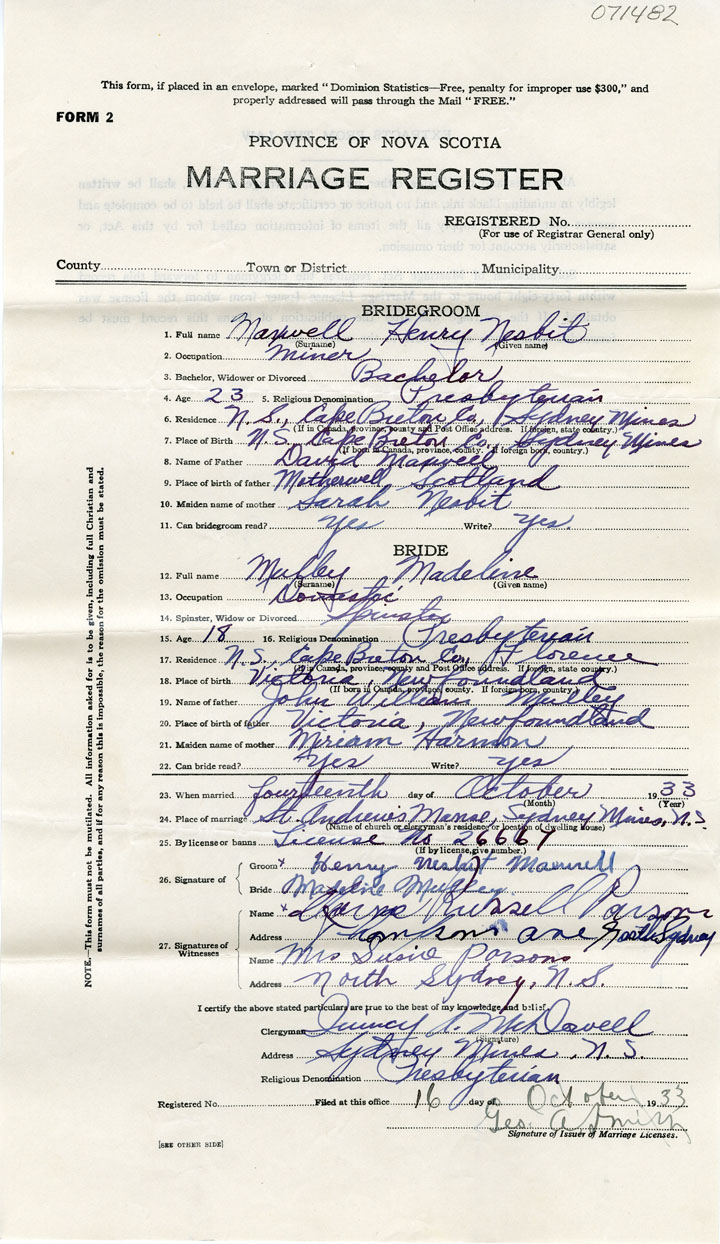 071482
This form, if placed in an envelope, marked "Dominion Statistics—Free, penalty for improper use $300," and
properly addressed will pass through the Mail "FREE."
FORM 2
PROVINCE OF NOVA SCOTIA
MARRIAGE REGISTER
REGISTERED No.
(For use of Registrar General only)
County Town or District Municipality
BRIDEGROOM
1. Full name Maxwell Henry Nesbit
(Surname) (Given name)
2. Occupation Miner
3. Bachelor, Widower or Divorced Bachelor
4. Age 23 5. Religious Denomination Presbyterian
6. Residence N.S., Cape Breton Co., Sydney Mines
(If in Canada, province, county and Post Office address. If foreign, state country.)
7. Place of Birth N.S., Cape Breton Co., Sydney Mines
(If born in Canada, province, county. If foreign born, country.)
8. Name of Father David Maxwell
9. Place of birth of father Motherwell Scotland
10. Maiden name of mother Sarah Nesbit
11. Can bridegroom read? yes Write? yes.
BRIDE
12. Full name Mulley Madeline
(Surname) (Given name)
13. Occupation Domestic
14. Spinster, Widow or Divorced Spinster
15. Age 18 16. Religious Denomination Presbyterian
17. Residence N.S., Cape Breton Co., Florence
(If in Canada, province, county and Post Office address. If foreign, state country.)
18. Place of birth Victoria, Newfoundland
(If born in Canada, province, county. If foreign born, country.)
19. Name of father John William Mulley
20. Place of birth of father Victoria, Newfoundland
21. Maiden name of mother Miriam Harmon
22. Can bride read? Yes Write? yes
23. When married fourteenth day of October 1933
(Month) (Year)
24. Place of marriage St. Andrew's Manse, Sydney Mines, N.S.
(Name of church or clergyman's residence or location of dwelling house)
25. By license or banns License No 26667
(If by license, give number.)
26. Signature of
Groom x Henry Nesbit Maxwell
Bride Madeline Mulley.
27. Signatures of Witnesses
Name x Russell Parsons
Address Ave North Sydney
Name Mrs Susie Parsons
Address North Sydney, N.S.
I certify the above stated particulars are true to the best of my knowledge and belief.
Clergyman Quincy A. McDowell
(Signature)
Address Sydney Mines, N.S.
Religious Denomination Presbyterian
Registered No. Filed at this office 16 day of October 1933
Geo. A Smith
Signature of Issuer of Marriage Licenses.
[SEE OTHER SIDE]
NOTE.—This form must not be mutilated. All information asked for is to be given, including full Christian and
surnames of all parties, and if for any reason this is impossible, the reason for the omission must be stated.